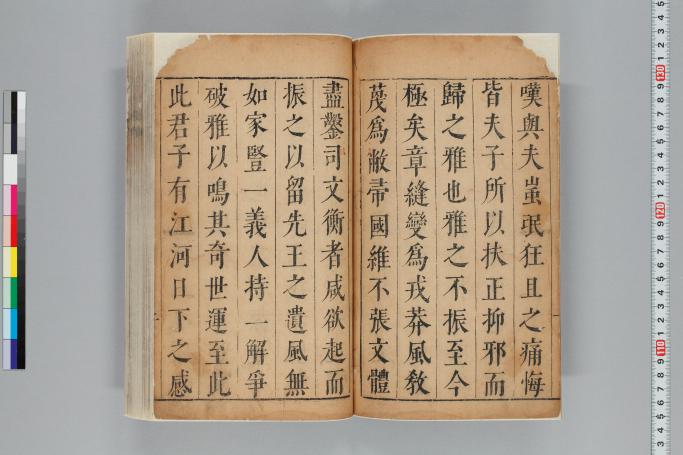 嘆與夫蚩珉狂且之痛悔
皆夫子所以扶正抑邪而
歸之雅也雅之不振至今
極矣章縫變為戎莽風敎
茂為敝帚國維不張文體
盡鑿司文衡者咸欲起而
振之以留先王之遺風無
如家豎一義人持一解爭
破雅以鳴其奇世運至此
此君子有江河日下之感